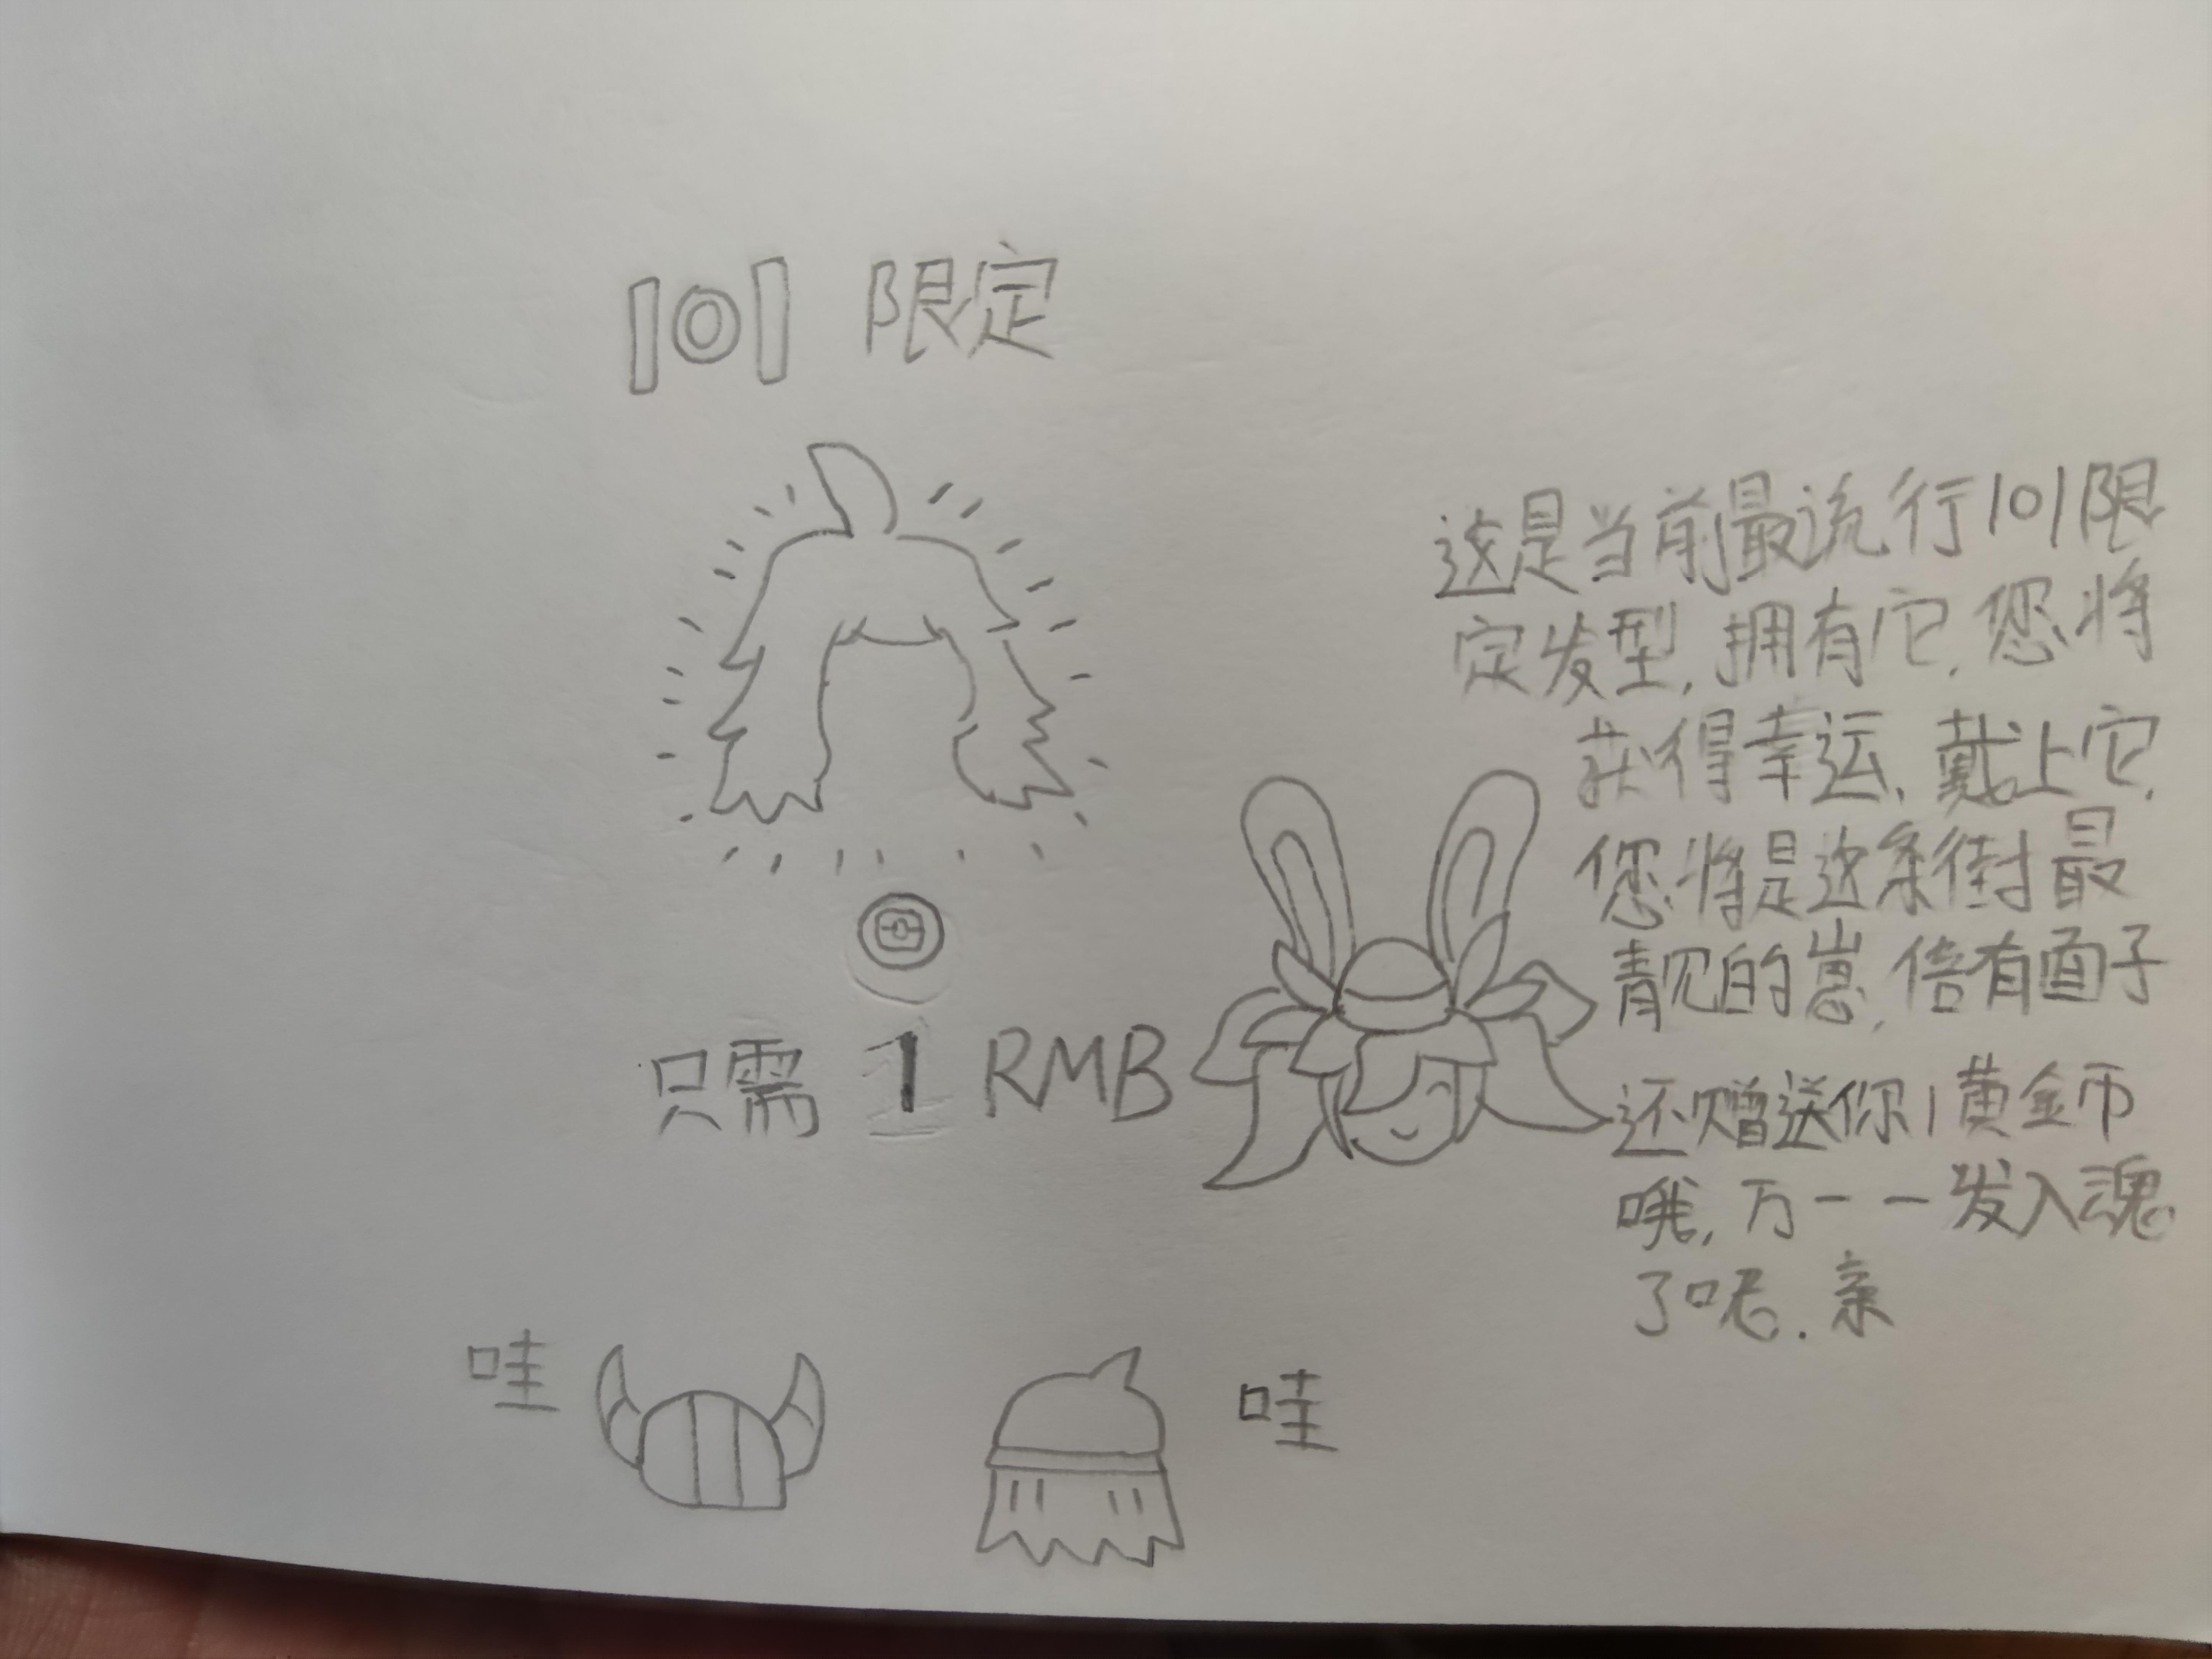 101 限定
这是当前最流行101限
定发型,拥有它,您将
获得幸运,戴上它,
您将是这条街最
靓的崽,倍有面子
还赠送你1黄金币
哦,万一一发入魂
了呢.亲
只需 1 RMB
哇
哇